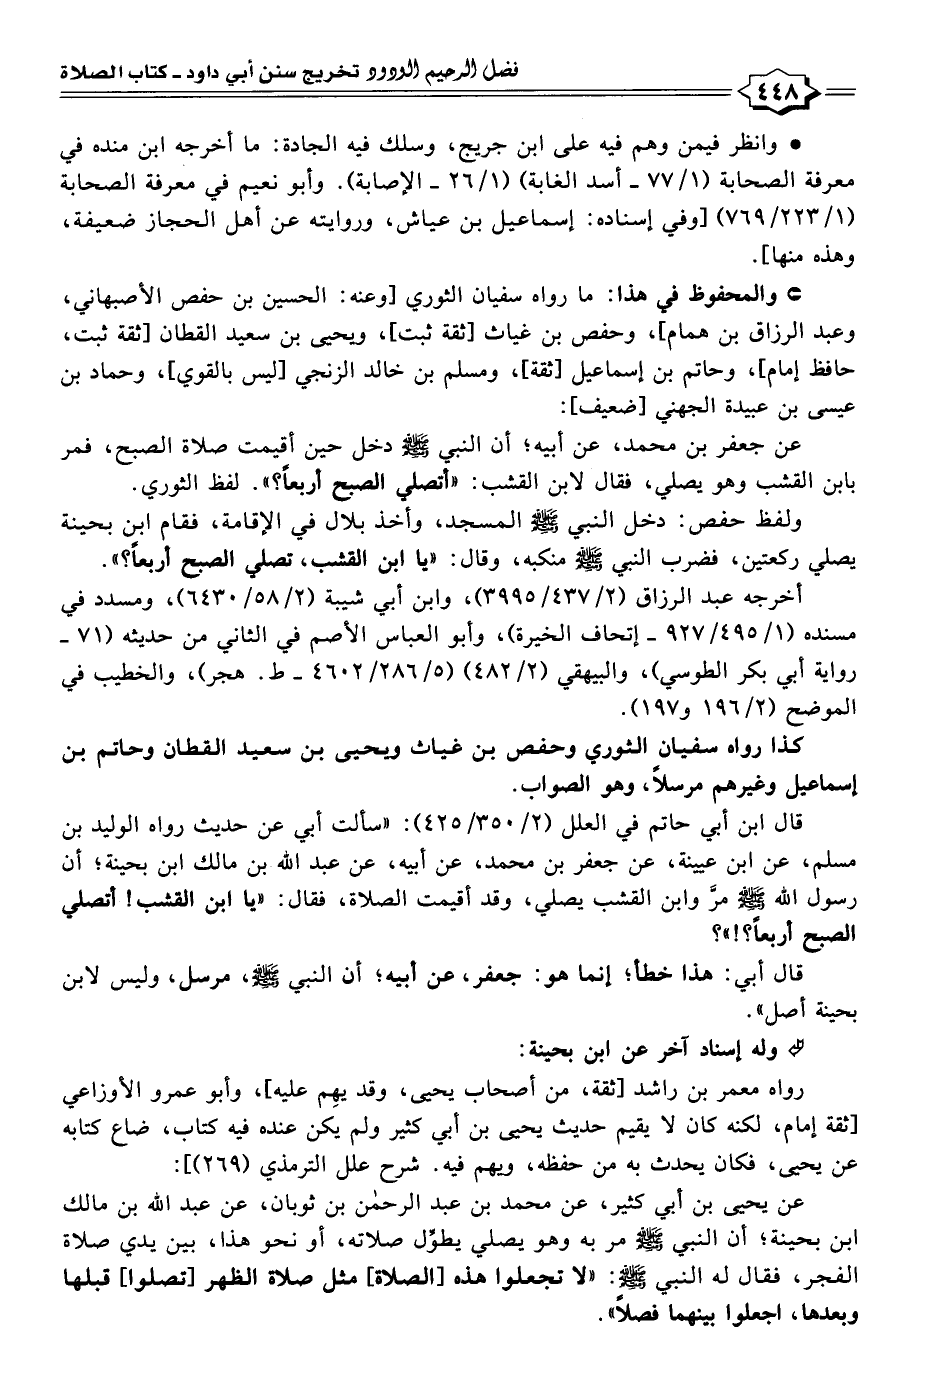 فضل الرحيم الودود تخريج سنن أبي داود ـ كتاب الصلاة
٤٤٨
• وانظر فيمن وهم فيه على ابن جريج، وسلك فيه الجادة: ما أخرجه ابن منده في
معرفة الصحابة (١/ ٧٧ ـ أسد الغابة) (١/ ٢٦ ـ الإصابة). وأبو نعيم في معرفة الصحابة
(١/ ٢٢٣/ ٧٦٩) [وفي إسناده: إسماعيل بن عياش، وروايته عن أهل الحجاز ضعيفة،
وهذه منها].
والمحفوظ في هذا: ما رواه سفيان الثوري [وعنه: الحسين بن حفص الأصبهاني،
وعبد الرزاق بن همام]، وحفص بن غياث [ثقة ثبت]، ويحيى بن سعيد القطان [ثقة ثبت،
حافظ إمام]، وحاتم بن إسماعيل [ثقة]، ومسلم بن خالد الزنجي [ليس بالقوي]، وحماد بن
عيسى بن عبيدة الجهني [ضعيف]:
عن جعفر بن محمد، عن أبيه؛ أن النبي ﷺ دخل حين أقيمت صلاة الصبح، فمر
بابن القشب وهو يصلي، فقال لابن القشب: «أتصلي الصبح أربعاً؟». لفظ الثوري.
ولفظ حفص: دخل النبي ﷺ المسجد، وأخذ بلال في الإقامة، فقام ابن بحينة
يصلي ركعتين، فضرب النبي ﷺ منكبه، وقال: «يا ابن القشب، تصلي الصبح أربعاً؟».
أخرجه عبد الرزاق (٢/ ٤٣٧/ ٣٩٩٥)، وابن أبي شيبة (٢/ ٥٨/ ٦٤٣٠)، ومسدد في
مسنده (١/ ٤٩٥/ ٩٢٧ ـ إتحاف الخيرة)، وأبو العباس الأصم في الثاني من حديثه (٧١ ـ
رواية أبي بكر الطوسي)، والبيهقي (٢/ ٤٨٢) (٥/ ٢٨٦/ ٤٦٠٢ ـ ط. هجر)، والخطيب في
الموضح (٢/ ١٩٦ و١٩٧).
كذا رواه سفيان الثوري وحفص بن غياث ويحيى بن سعيد القطان وحاتم بن
إسماعيل وغيرهم مرسلاً، وهو الصواب.
قال ابن أبي حاتم في العلل (٢/ ٣٥٠/ ٤٢٥): «سألت أبي عن حديث رواه الوليد بن
مسلم، عن ابن عيينة، عن جعفر بن محمد، عن أبيه، عن عبد الله بن مالك ابن بحينة؛ أن
رسول الله ﷺ مرَّ وابن القشب يصلي، وقد أقيمت الصلاة، فقال: «يا ابن القشب! أتصلي
الصبح أربعاً؟!»؟
قال أبي: هذا خطأ؛ إنما هو: جعفر، عن أبيه؛ أن النبي ﷺ، مرسل، وليس لابن
بحينة أصل».
وله إسناد آخر عن ابن بحينة:
رواه معمر بن راشد [ثقة، من أصحاب يحيى، وقد يهم عليه]، وأبو عمرو الأوزاعي
[ثقة إمام، لكنه كان لا يقيم حديث يحيى بن أبي كثير ولم يكن عنده فيه كتاب، ضاع كتابه
عن يحيى، فكان يحدث به من حفظه، ويهم فيه. شرح علل الترمذي (٢٦٩)]:
عن يحيى بن أبي كثير، عن محمد بن عبد الرحمٰن بن ثوبان، عن عبد الله بن مالك
ابن بحينة؛ أن النبي ﷺ مر به وهو يصلي يطوِّل صلاته، أو نحو هذا، بين يدي صلاة
الفجر، فقال له النبي ﷺ: «لا تجعلوا هذه [الصلاة] مثل صلاة الظهر [تصلوا] قبلها
وبعدها، اجعلوا بينهما فصلاً».